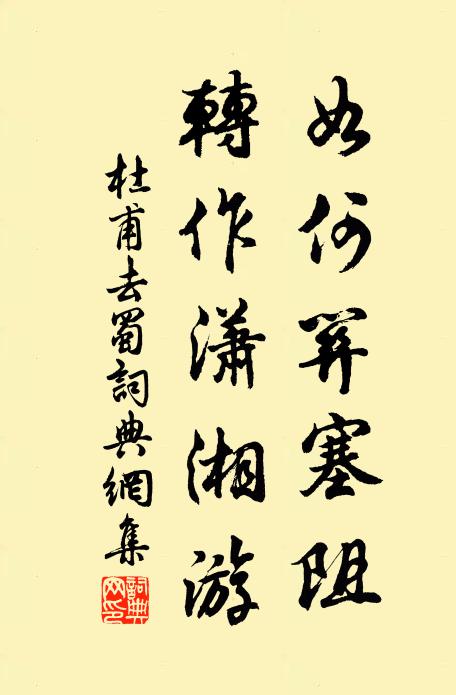 如何關塞阻
轉作瀟湘游
杜甫去蜀詞典網集
詞典網印